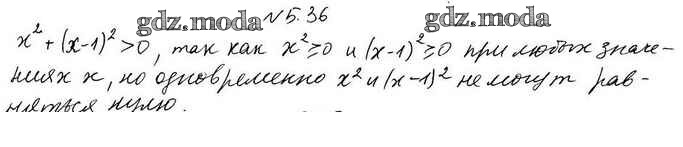 gdz.moda №5.36 gdz.moda
x² + (x-1)² > 0, так как x² ≥ 0 и (x-1)² ≥ 0 при любых значе-
ниях x, но одновременно x² и (x-1)² не могут рав-
няться нулю.